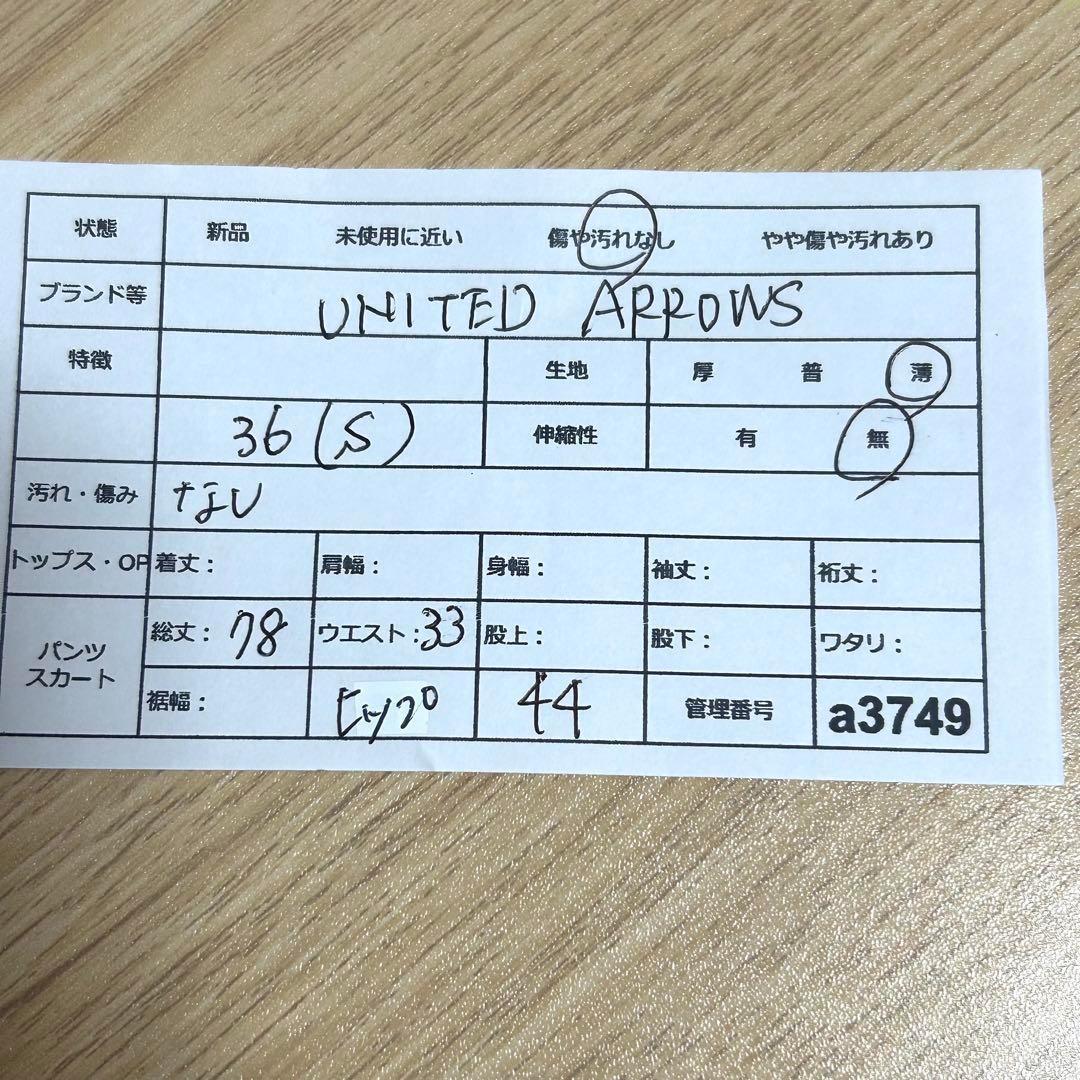 状態 新品 未使用に近い 傷や汚れなし やや傷や汚れあり
ブランド等 UNITED ARROWS
特徴 生地 厚 普 薄
36(S) 伸縮性 有 無
汚れ・傷み なし
トップス・OP 着丈: 肩幅: 身幅: 袖丈: 裄丈:
パンツ スカート 総丈: 78 ウエスト: 33 股上: 股下: ワタリ:
裾幅: ヒップ 44 管理番号 a3749